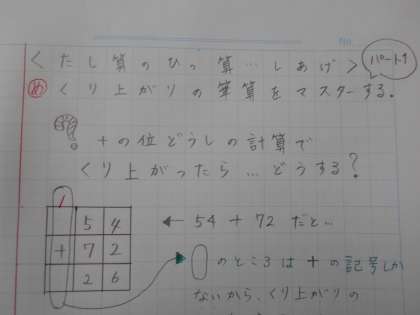 No.
<たし算のひっ算…しあげ>
パート1
め くり上がりの筆算をマスターする。
十の位どうしの計算で
くり上がったら…どうする?
1
5 4
+ 7 2
2 6
← 54+72 だと…
のところは+の記号しか
ないから、くり上がりの